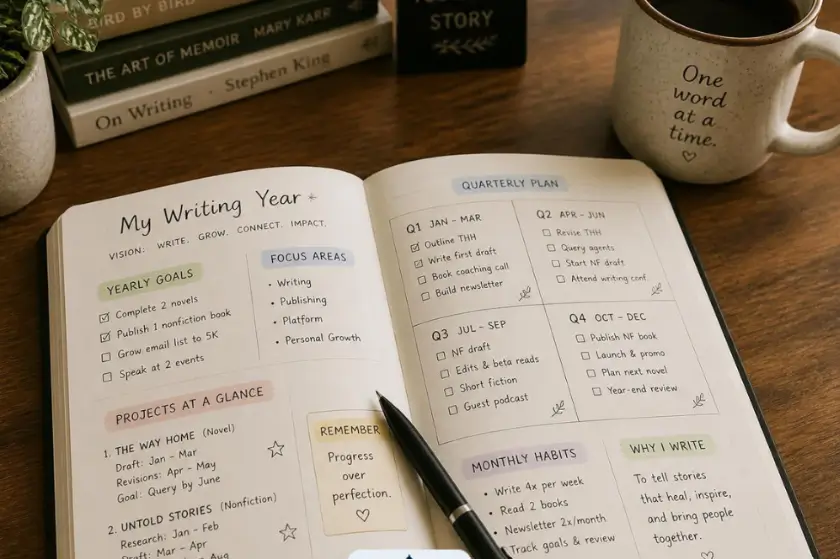 BIRD BY BIRD
THE ART OF MEMOIR MARY KARR
On Writing - Stephen King
STORY
One
word
at a
time.
My Writing Year
VISION: WRITE. GROW. CONNECT. IMPACT.
YEARLY GOALS
Complete 2 novels
Publish 1 nonfiction book
Grow email list to 5K
Speak at 2 events
FOCUS AREAS
• Writing
• Publishing
• Platform
• Personal Growth
PROJECTS AT A GLANCE
1. THE WAY HOME (Novel)
Draft: Jan - Mar
Revisions: Apr - May
Goal: Query by June
2. UNTOLD STORIES (Nonfiction)
Research: Jan - Feb
Draft: Mar - Apr
Aug
REMEMBER
Progress
over
perfection.
QUARTERLY PLAN
Q1 JAN - MAR
Outline THH
Write first draft
Book coaching call
Build newsletter
Q2 APR - JUN
Revise THH
Query agents
Start NF draft
Attend writing conf.
Q3 JUL - SEP
NF draft
Edits & beta reads
Short fiction
Guest podcast
Q4 OCT - DEC
Publish NF book
Launch & promo
Plan next novel
Year-end review
MONTHLY HABITS
• Write 4x per week
• Read 2 books
• Newsletter 2x/month
Track goals & review
WHY I WRITE
To tell stories
that heal, inspire,
and bring people
together.